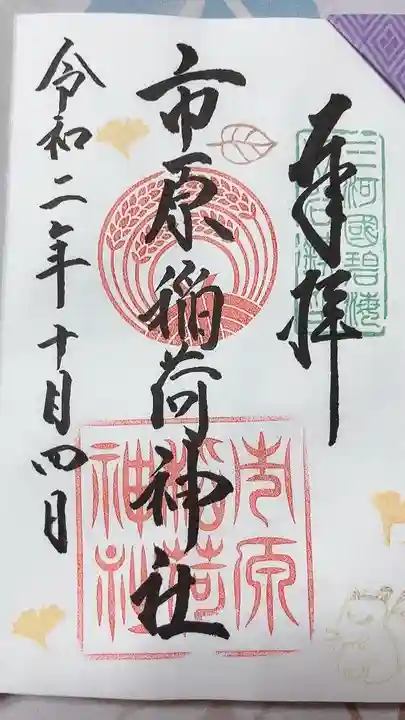 奉拝
三河國碧海
市原稲荷神社
市原
稲荷
神社
令和二年十月四日